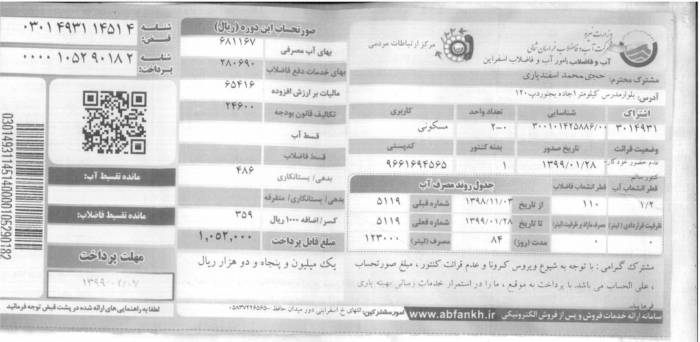 وزارت نیرو
شرکت آب و فاضلاب خراسان شمالی
آب و فاضلاب بامور آب و فاضلاب اسفراین
مرکز ارتباطات مردمی
مشترک محترم: حجی محمد اسفندیاری
آدرس: بلوارمدرس کیلومتر ۱جاده بجنوردپ ۱۲۰
اشتراک شناسایی تعداد واحد کاربری
۳۰۱۴۹۳۱ ۳۰۰۱۰۱۴۲۵۸۸۶/۰۰ ۲-۰ مسکونی
وضعیت قرائت تاریخ صدور بدنه کنتور کدپستی
عدم حضور خود کار ۱۳۹۹/۰۱/۲۸ ۱ ۹۶۶۱۶۹۴۵۶۵
کنتور سالم
قطر انشعاب آب قطر انشعاب فاضلاب
۱/۲ ۱۱۰
ظرفیت قراردادی (لیتر) مصرف مازاد بر ظرفیت (لیتر)
۰ ۰
جدول روند مصرف آب
از تاریخ ۱۳۹۸/۱۱/۰۳ شماره قبلی ۵۱۱۹
تا تاریخ ۱۳۹۹/۰۱/۲۸ شماره فعلی ۵۱۱۹
مدت (روز) ۸۴ مصرف (لیتر) ۱۲۳۰۰۰
مشترک گرامی : با توجه به شیوع ویروس کرونا و عدم قرائت کنتور ، مبلغ صورتحساب
، علی الحساب می باشد. با پرداخت به موقع ، ما را در استمرار خدمات رسانی بهینه یاری
فرمایید.
سامانه ارائه خدمات فروش و پس از فروش الکترونیکی www.abfankh.ir
امور مشترکین: انتهای خ اسفراینی دور میدان حافظ -۰۵۸۳۷۲۲۶۵۶۵
صورتحساب این دوره (ریال)
بهای آب مصرفی ۶۸۱۱۶۷
بهای خدمات دفع فاضلاب ۲۸۰۶۹۰
مالیات بر ارزش افزوده ۶۵۴۱۶
تکالیف قانون بودجه ۲۴۶۰۰
قسط آب
قسط فاضلاب
بدهی/ بستانکاری ۴۸۶
بدهی/ بستانکاری/ متفرقه
کسر/اضافه ۱۰۰۰ ریال ۳۵۹
مبلغ قابل پرداخت ۱,۰۵۲,۰۰۰
یک میلیون و پنجاه و دو هزار ریال
شناسه قبض: ۰۳۰۱۴۹۳۱۱۴۵۱۴
شناسه پرداخت: ۰۰۰۰۱۰۵۲۹۰۱۸۲
03014931145140000010529018​2
مانده تقسیط آب:
مانده تقسیط فاضلاب:
مهلت پرداخت
۱۳۹۹/۰۲/۰۷
لطفا به راهنمایی های ارائه شده در پشت قبض توجه فرمائید